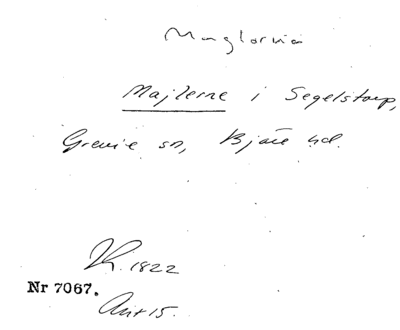 Maglorna
Majlerne i Segelstorp,
Grevie sn, Bjäre hd.
K. 1822
Nr 7067.
Art 15.